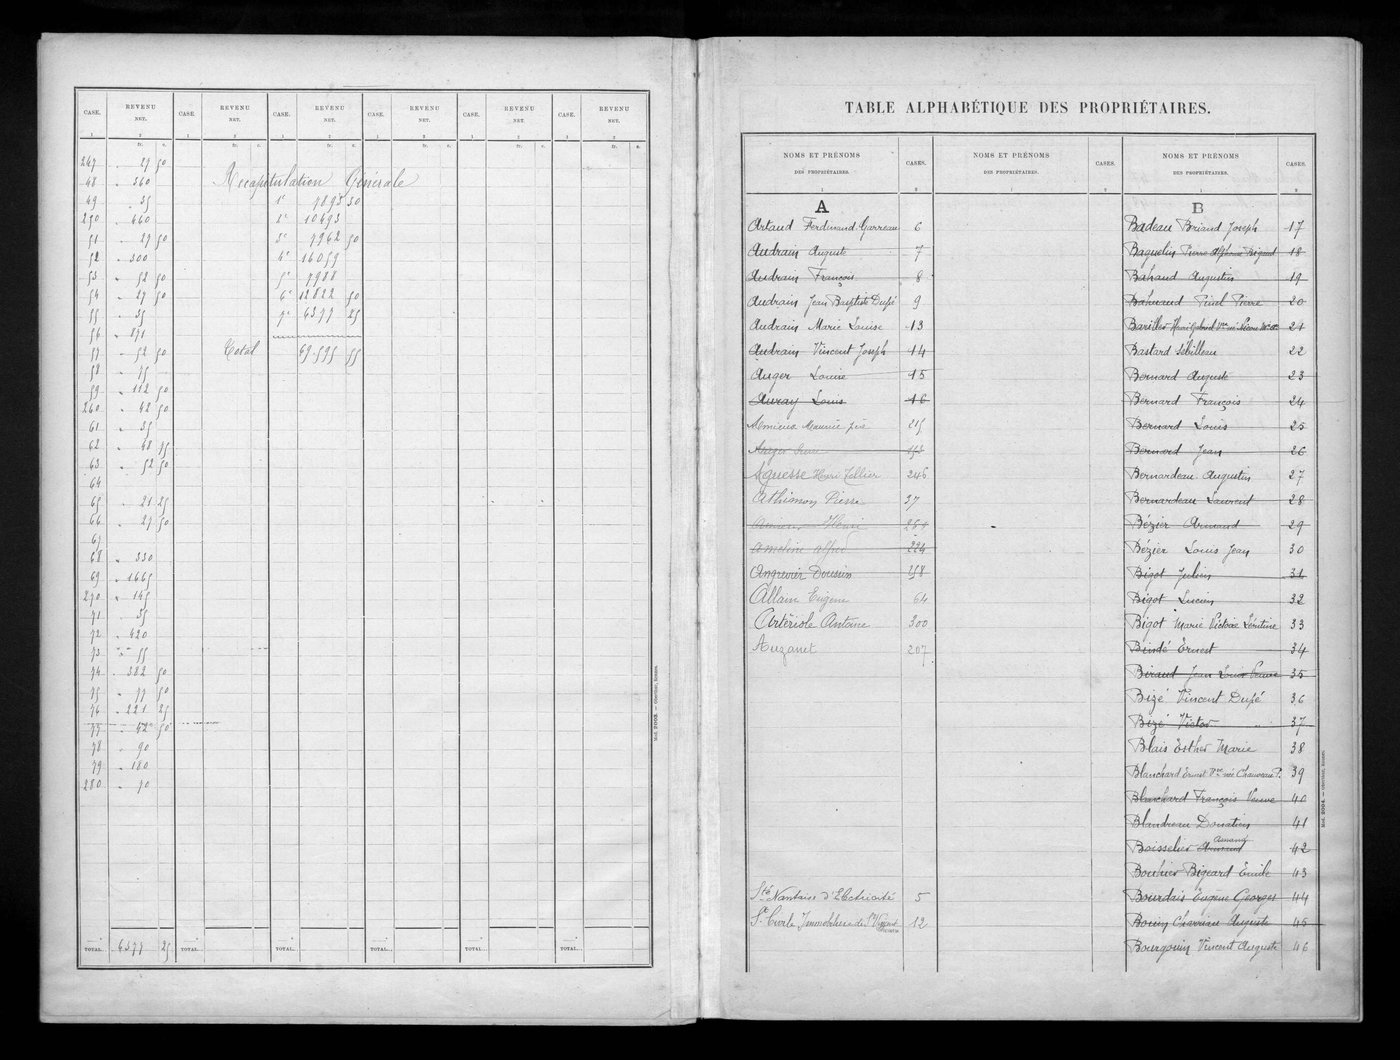 CASE. REVENU NET. CASE. REVENU NET. CASE. REVENU NET. CASE. REVENU NET. CASE. REVENU NET. CASE. REVENU NET.
1 2 1 2 1 2 1 2 1 2 1 2
fr. c. fr. c. fr. c. fr. c. fr. c. fr. c.
247 " 27 50
48 " 360
49 " 35
250 " 460
51 " 27 50
52 " 300
53 " 52 50
54 " 27 50
55 " 35
56 " 871
57 " 52 50
58 " 75
59 " 112 50
260 " 42 50
61 " 35
62 " 48 75
63 " 52 50
64
65 " 21 25
66 " 27 50
67
68 " 330
69 " 1665
270 " 145
71 " 35
72 " 420
73 " 55
74 " 382 50
75 " 77 50
76 " 221 25
77 " 42 50
78 " 90
79 " 180
280 " 70
TOTAL. 6377 25 TOTAL. TOTAL. TOTAL. TOTAL. TOTAL.
Récapitulation Générale
1e 7893 30
2e 10493
3e 7962 50
4e 16059
5e 7988
6e 12822 50
7e 6377 25
Total 69595 55
Mod. 2003. — Oberthür, Rennes.
TABLE ALPHABÉTIQUE DES PROPRIÉTAIRES.
NOMS ET PRÉNOMS DES PROPRIÉTAIRES. CASES. NOMS ET PRÉNOMS DES PROPRIÉTAIRES. CASES. NOMS ET PRÉNOMS DES PROPRIÉTAIRES. CASES.
1 2 1 2 1 2
A
Artaud Ferdinand Garreau 6
Audrain Auguste 7
Audrain François 8
Audrain Jean Baptiste Dupé 9
Audrain Marie Louise 13
Audrain Vincent Joseph 14
Auger Louise 15
Auray Louis 16
Amieux Maurice père 215
Auger 153
Aguesse Henri Tellier 246
Athimon Pierre 37
Henri 261
Ameline Alfred 224
Angrevier Doussin 258
Allain Eugène 64
Artériole Antoine 300
Auzanet 207
Sté Nantaise d'Electricité 5
Sé Civile Immobilière de St Vincent 12
B
Badeau Briand Joseph 17
Baguelin Pierre Alphonse Frigaud 18
Bahaud Augustin 19
Bahuaud Pinel Pierre 20
Bariller Henri Gabriel Vve née 21
Bastard Sébilleau 22
Bernard Auguste 23
Bernard François 24
Bernard Louis 25
Bernard Jean 26
Bernardeau Augustin 27
Bernardeau Laurent 28
Bézier Armand 29
Bézier Louis Jean 30
Bigot Julien 31
Bigot Lucien 32
Bigot Marie Victoire Léontine 33
Bindé Ernest 34
Biraud Jean Louis Veuve 35
Bizé Vincent Dupé 36
Bizé Victor 37
Blais Esther Marie 38
Blanchard Ernest Vve née Chauveau P. 39
Blanchard François Veuve 40
Blandreau Donatien 41
Boisselier Armand Amand 42
Bouhier Bigeard Emile 43
Bourdais Eugène Georges 44
Bouin Charriau Auguste 45
Bourgouin Vincent Auguste 46
Mod. 2004. — Oberthür, Rennes.